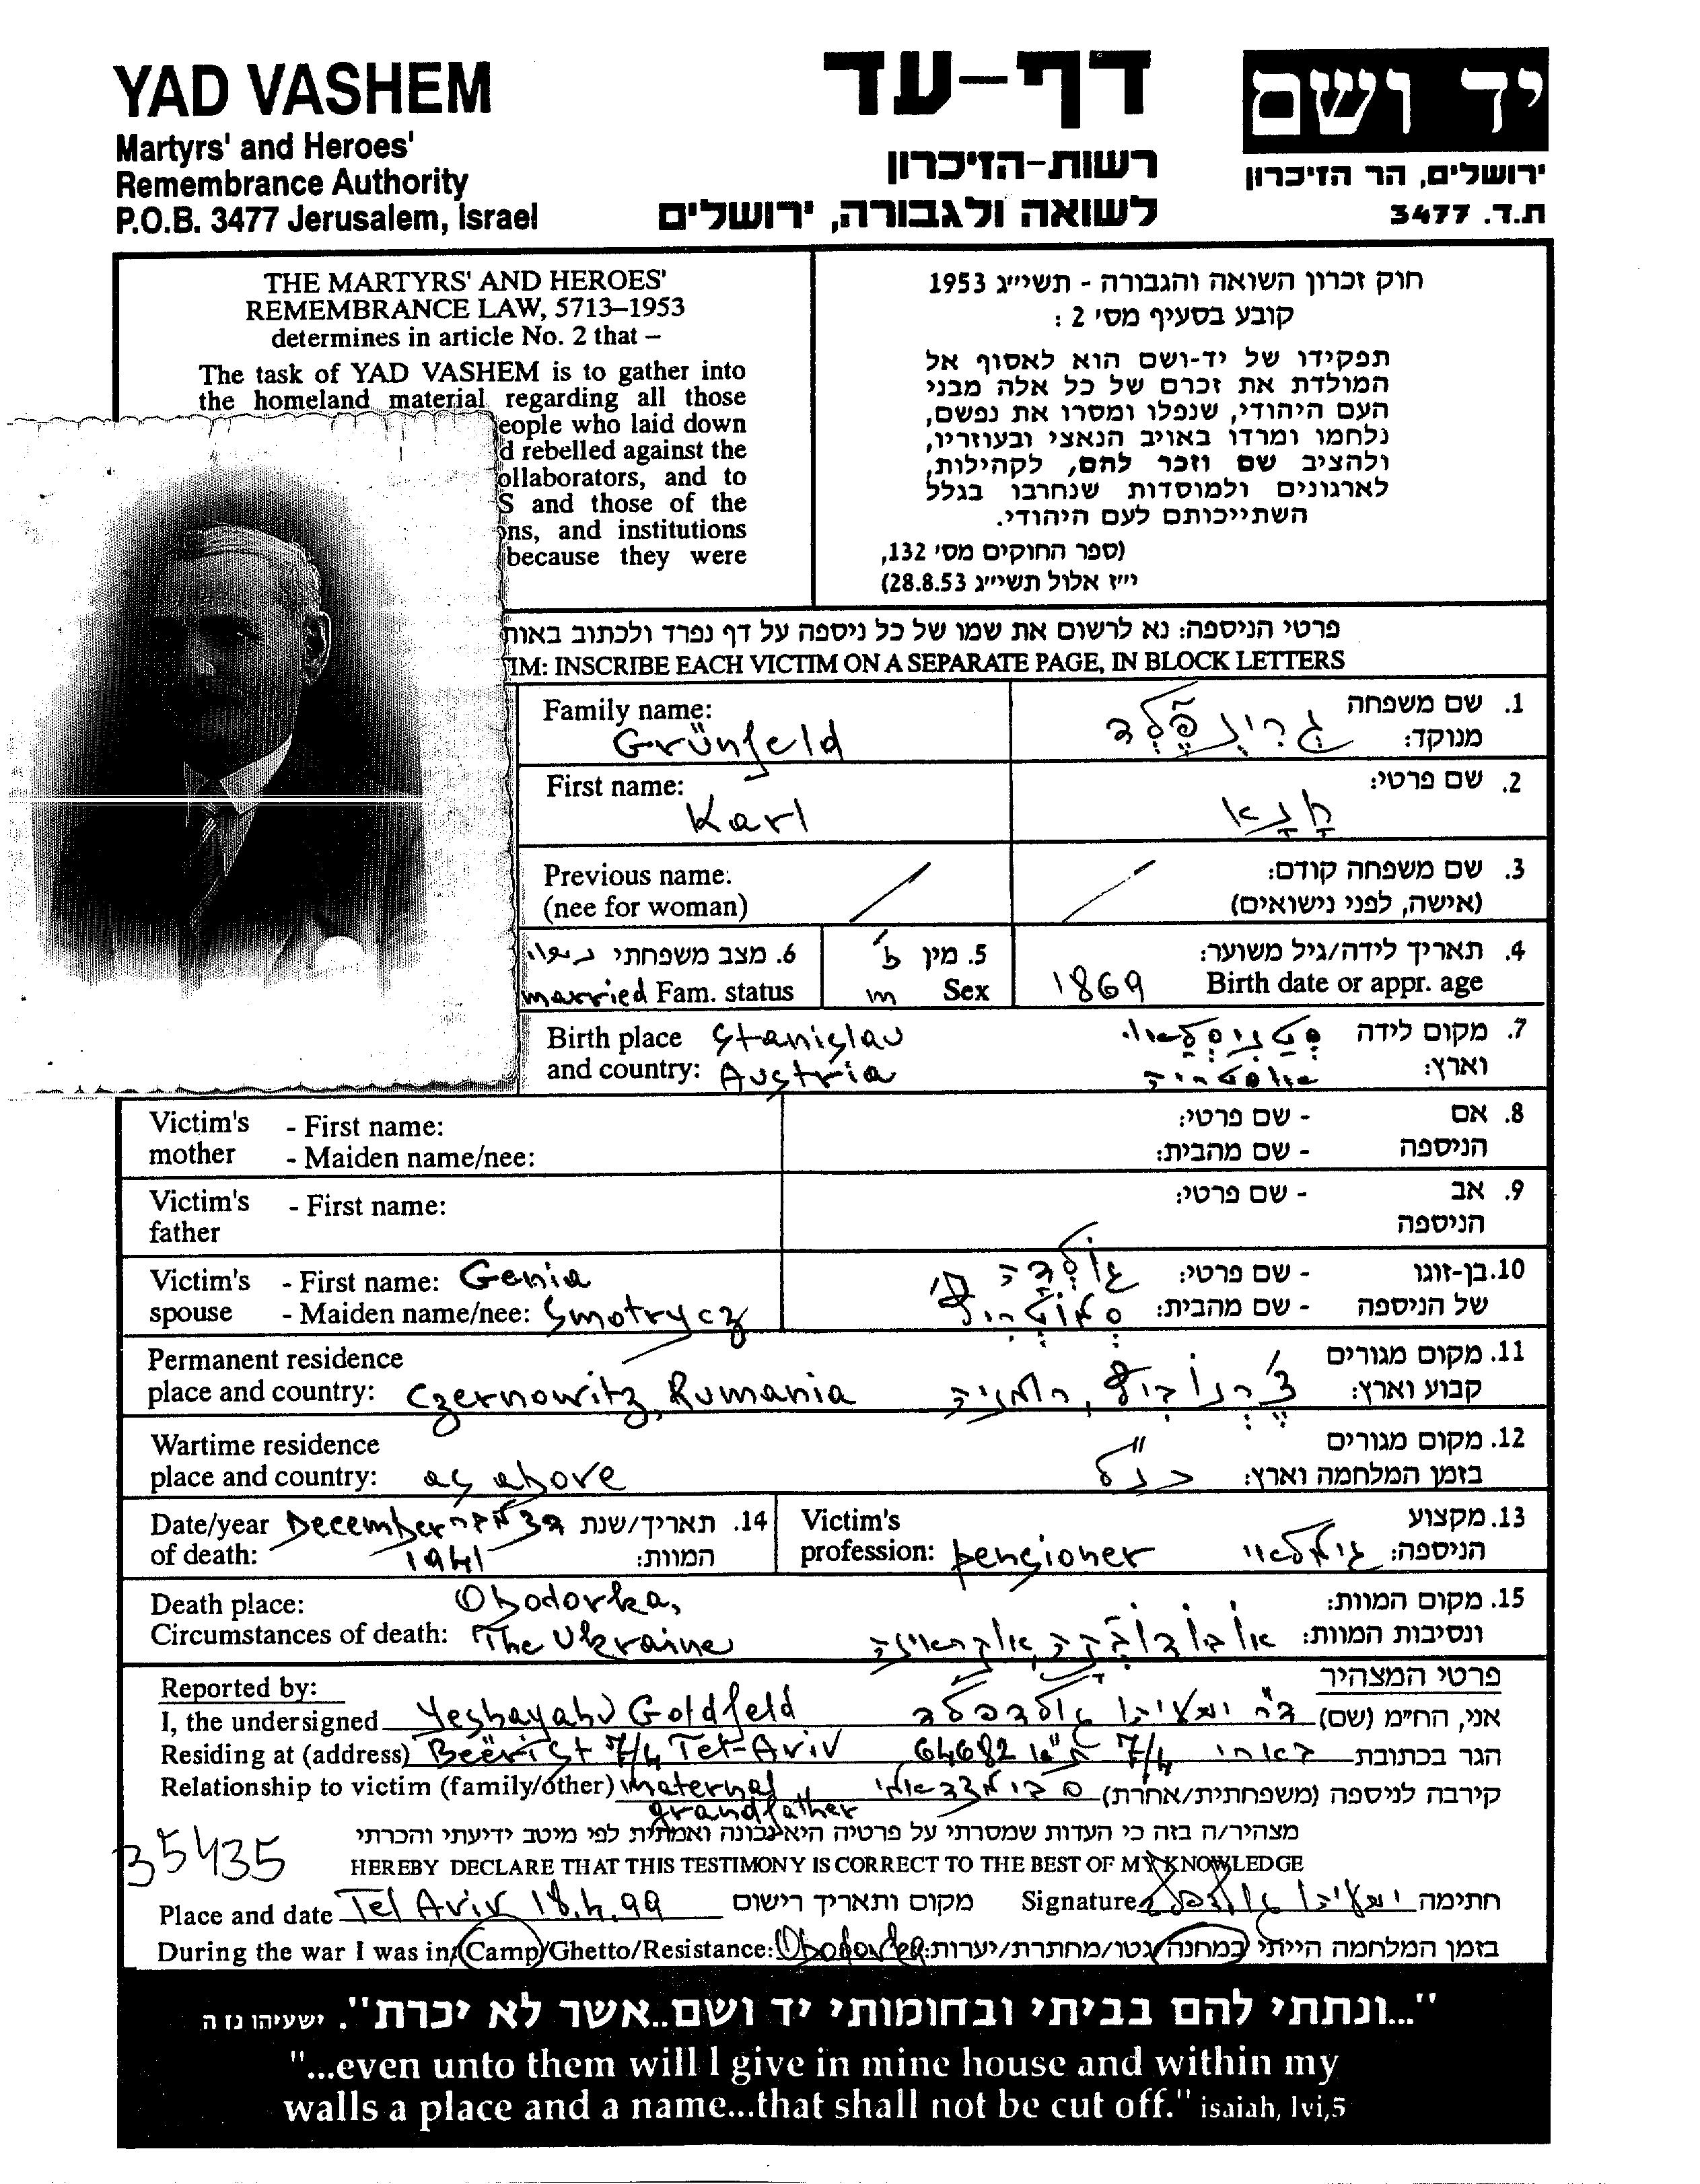 YAD VASHEM
Martyrs' and Heroes'
Remembrance Authority
P.O.B. 3477 Jerusalem, Israel
דף-עד
רשות-הזיכרון
לשואה ולגבורה, ירושלים
יד ושם
ירושלים, הר הזיכרון
ת.ד. 3477
THE MARTYRS' AND HEROES'
REMEMBRANCE LAW, 5713–1953
determines in article No. 2 that –
The task of YAD VASHEM is to gather into
the homeland material regarding all those
eople who laid down
d rebelled against the
ollaborators, and to
S and those of the
ons, and institutions
because they were
חוק זכרון השואה והגבורה - תשי״ג 1953
קובע בסעיף מס׳ 2 :
תפקידו של יד-ושם הוא לאסוף אל
המולדת את זכרם של כל אלה מבני
העם היהודי, שנפלו ומסרו את נפשם,
נלחמו ומרדו באויב הנאצי ובעוזריו,
ולהציב שם וזכר להם, לקהילות,
לארגונים ולמוסדות שנחרבו בגלל
השתייכותם לעם היהודי.
(ספר החוקים מס׳ 132,
י״ז אלול תשי״ג 28.8.53)
פרטי הניספה: נא לרשום את שמו של כל ניספה על דף נפרד ולכתוב באות
IM: INSCRIBE EACH VICTIM ON A SEPARATE PAGE, IN BLOCK LETTERS
Family name:
Grünfeld
1. שם משפחה
מנוקד:
גרינפלד
First name:
Karl
2. שם פרטי:
Previous name:
(nee for woman)
3. שם משפחה קודם:
(אישה, לפני נישואים)
6. מצב משפחתי נשוי
married Fam. status
5. מין ז
m Sex
4. תאריך לידה/גיל משוער:
1869 Birth date or appr. age
Birth place Stanislau
and country: Austria
7. מקום לידה סטניסלאו
וארץ: אוסטריה
Victim's - First name:
mother - Maiden name/nee:
8. אם - שם פרטי:
הניספה - שם מהבית:
Victim's - First name:
father
9. אב - שם פרטי:
הניספה
Victim's - First name: Genia
spouse - Maiden name/nee: Smotrycz
10. בן-זוגו - שם פרטי: גולדה
של הניספה - שם מהבית: סמוטריץ'
Permanent residence
place and country: Czernowitz, Rumania
11. מקום מגורים
קבוע וארץ: צ'רנוביץ, רומניה
Wartime residence
place and country: as above
12. מקום מגורים
בזמן המלחמה וארץ: כנ"ל
Date/year December דצמבר 14. תאריך/שנת
of death: 1941 המוות:
Victim's
profession: pensioner
13. מקצוע
הניספה: גימלאי
Death place: Obodovka,
Circumstances of death: The Ukraine
15. מקום המוות:
ונסיבות המוות: אובודובקה, אוקראינה
Reported by:
פרטי המצהיר
I, the undersigned Yeshayahu Goldfeld
אני, הח״מ (שם) ד"ר ישעיהו גולדפלד
Residing at (address) Beeri St 7/4 Tel-Aviv
הגר בכתובת בארי 7/4 ת"א 64682
Relationship to victim (family/other) maternal
grandfather
קירבה לניספה (משפחתית/אחרת) סבי מצד אמי
מצהיר/ה בזה כי העדות שמסרתי על פרטיה היא נכונה ואמתית לפי מיטב ידיעתי והכרתי
35435
HEREBY DECLARE THAT THIS TESTIMONY IS CORRECT TO THE BEST OF MY KNOWLEDGE
Place and date Tel Aviv 18.4.99 מקום ותאריך רישום
Signature ישעיהו גולדפלד חתימה
During the war I was in/Camp/Ghetto/Resistance: Obodovka
בזמן המלחמה הייתי במחנה/גטו/מחתרת/יערות:
"...ונתתי להם בביתי ובחומותי יד ושם..אשר לא יכרת". ישעיהו נז ה
"...even unto them will I give in mine house and within my
walls a place and a name...that shall not be cut off." isaiah, lvi,5